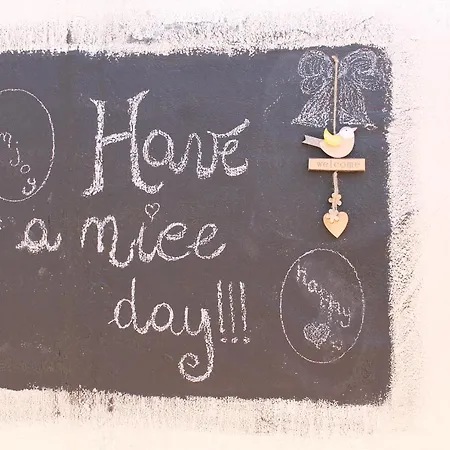 Have
a nice
day!!!
njoy
welcome
Happy